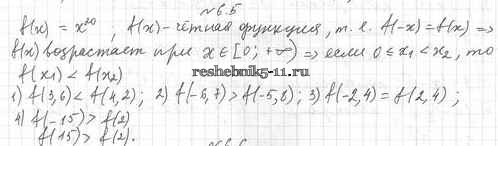 №6.5
f(x) = x²⁰ ; f(x) - чётная функция, т. е. f(-x) = f(x) ⇒
f(x) возрастает при x ∈ [0; +∞) ⇒ если 0 ≤ x₁ < x₂, то
f(x₁) < f(x₂)
reshebnik5-11.ru
1) f(3,6) < f(4,2); 2) f(-6,7) > f(-5,8); 3) f(-2,4) = f(2,4);
4) f(-15) > f(2)
f(15) > f(2).